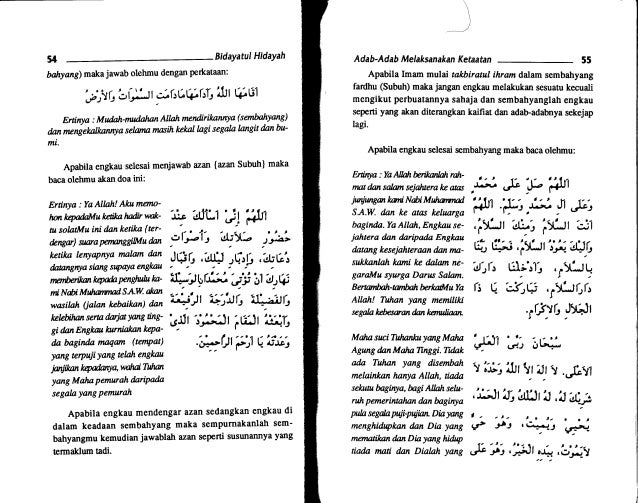 54 Bidayatul Hidayah
bahyang) maka jawab olehmu dengan perkataan:
أَقَامَهَا اللهُ وَأَدَامَهَا مَادَامَتِ السَّمٰوَاتُ وَالْأَرْضُ
Ertinya : Mudah-mudahan Allah mendirikannya (sembahyang)
dan mengekalkannya selama masih kekal lagi segala langit dan bu-
mi.
Apabila engkau selesai menjawab azan {azan Subuh} maka
baca olehmu akan doa ini:
Ertinya : Ya Allah! Aku memo-
hon kepadaMu ketika hadir wak-
tu solatMu ini dan ketika (ter-
dengar) suara pemanggilMu dan
ketika lenyapnya malam dan
datangnya siang supaya engkau
memberikan kepada penghulu ka-
mi Nabi Muhammad S.A.W. akan
wasilah (jalan kebaikan) dan
kelebihan serta darjat yang ting-
gi dan Engkau kurniakan kepa-
da baginda maqam (tempat)
yang terpuji yang telah engkau
janjikan kepadanya, wahai Tuhan
yang Maha pemurah daripada
segala yang pemurah
اَللّٰهُمَّ إِنِّيْ أَسْأَلُكَ عِنْدَ
حُضُوْرِ صَلَاتِكَ وَأَصْوَاتِ
دُعَاتِكَ، وَإِدْبَارِ لَيْلِكَ، وَإِقْبَالِ
نَهَارِكَ أَنْ تُؤْتِيَ مُحَمَّدًا الْوَسِيْلَةَ
وَالْفَضِيْلَةَ وَالدَّرَجَةَ الرَّفِيْعَةَ
وَابْعَثْهُ الْمَقَامَ الْمَحْمُوْدَ الَّذِيْ
وَعَدْتَهُ يَا أَرْحَمَ الرَّاحِمِيْنَ.
Apabila engkau mendengar azan sedangkan engkau di
dalam keadaan sembahyang maka sempurnakanlah sem-
bahyangmu kemudian jawablah azan seperti susunannya yang
termaklum tadi.
Adab-Adab Melaksanakan Ketaatan 55
Apabila Imam mulai takbiratul ihram dalam sembahyang
fardhu (Subuh) maka jangan engkau melakukan sesuatu kecuali
mengikut perbuatannya sahaja dan sembahyanglah engkau
seperti yang akan diterangkan kaifiat dan adab-adabnya sekejap
lagi.
Apabila engkau selesai sembahyang maka baca olehmu:
Ertinya : Ya Allah berikanlah rah-
mat dan salam sejahtera ke atas
junjungan kami Nabi Muhammad
S.A.W. dan ke atas keluarga
baginda. Ya Allah, Engkau se-
jahtera dan daripada Engkau
datang kesejahteraan dan ma-
sukkanlah kami ke dalam ne-
garaMu syurga Darus Salam.
Bertambah-tambah berkatMu Ya
Allah! Tuhan yang memiliki
segala kebesaran dan kemuliaan.
اَللّٰهُمَّ صَلِّ عَلَى مُحَمَّدٍ
وَعَلَى آلِ مُحَمَّدٍ وَسَلِّمْ. اَللّٰهُمَّ
أَنْتَ السَّلَامُ وَمِنْكَ السَّلَامُ،
وَإِلَيْكَ يَعُوْدُ السَّلَامُ، فَحَيِّنَا رَبَّنَا
بِالسَّلَامِ، وَأَدْخِلْنَا دَارَكَ
دَارَ السَّلَامِ، تَبَارَكْتَ يَا ذَا
الْجَلَالِ وَالْإِكْرَامِ.
Maha suci Tuhanku yang Maha
Agung dan Maha Tinggi. Tidak
ada Tuhan yang disembah
melainkan hanya Allah, tiada
sekutu baginya, bagi Allah selu-
ruh pemerintahan dan baginya
pula segala puji-pujian. Dia yang
menghidupkan dan Dia yang
mematikan dan Dia yang hidup
tiada mati dan Dialah yang
سُبْحَانَ رَبِّيَ الْعَلِيِّ
الْأَعْلَى. لَا إِلٰهَ إِلَّا اللهُ وَحْدَهُ لَا
شَرِيْكَ لَهُ، لَهُ الْمُلْكُ وَلَهُ الْحَمْدُ،
يُحْيِيْ وَيُمِيْتُ، وَهُوَ حَيٌّ
لَا يَمُوْتُ، بِيَدِهِ الْخَيْرُ، وَهُوَ عَلَى